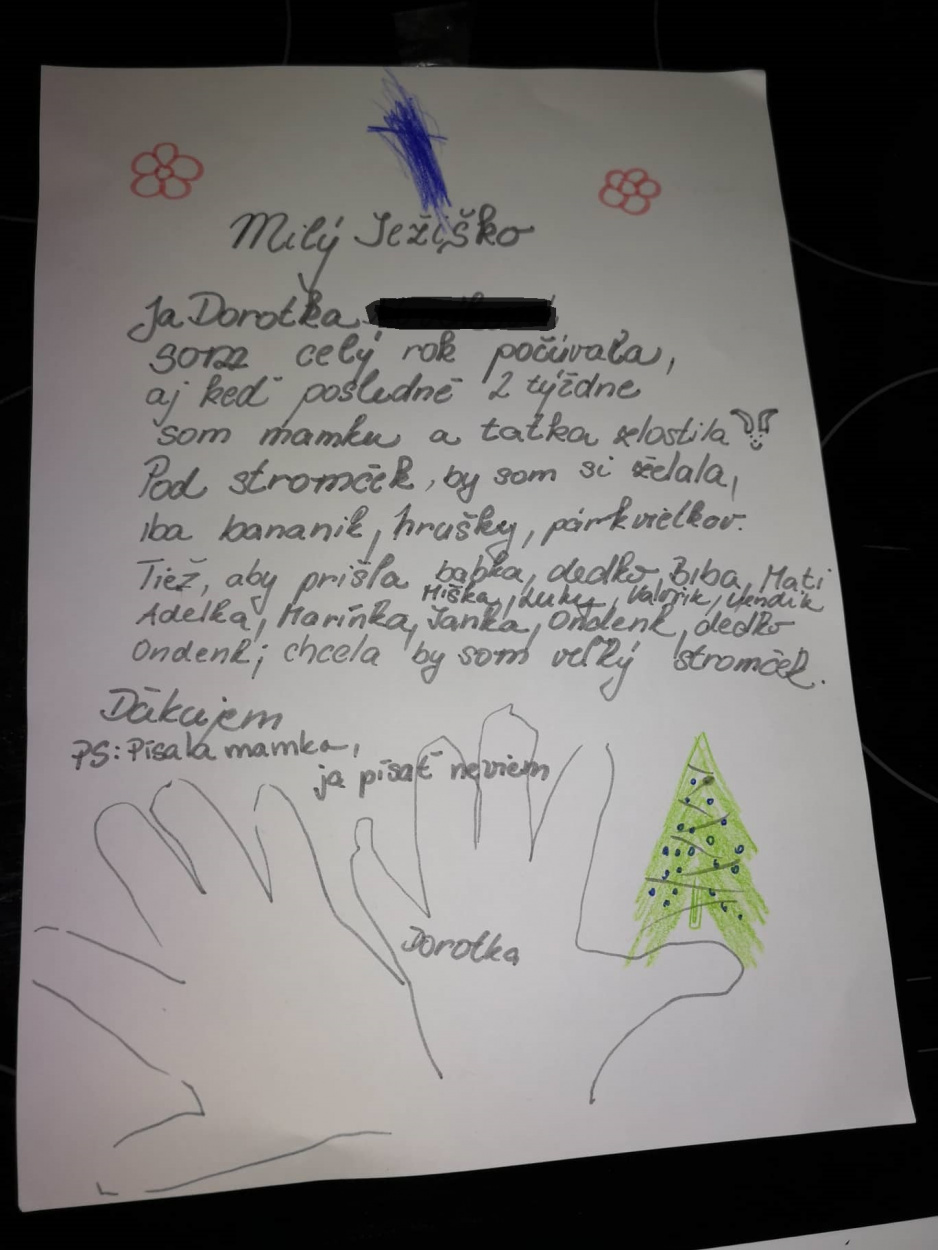 Milý Ježiško
Ja Dorotka
som celý rok počúvala,
aj keď posledné 2 týždne
som mamku a tatka zlostila
Pod stromček, by som si želala,
iba bananik, hrušky, pár kvielkov.
Tiež, aby prišla babka, dedko, Biba, Mati
Miška, Luky, Valórik, Vendik
Adelka, Marínka, Janka, Ondenk, dedko
Ondenk; chcela by som veľký stromček.
Ďakujem
PS: Písala mamka,
ja písať neviem
Dorotka